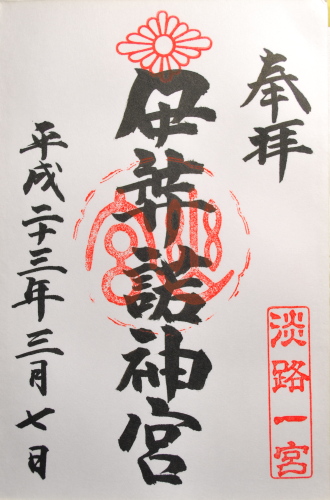 奉拝
淡路一宮
伊弉諾神宮
平成二十三年三月七日